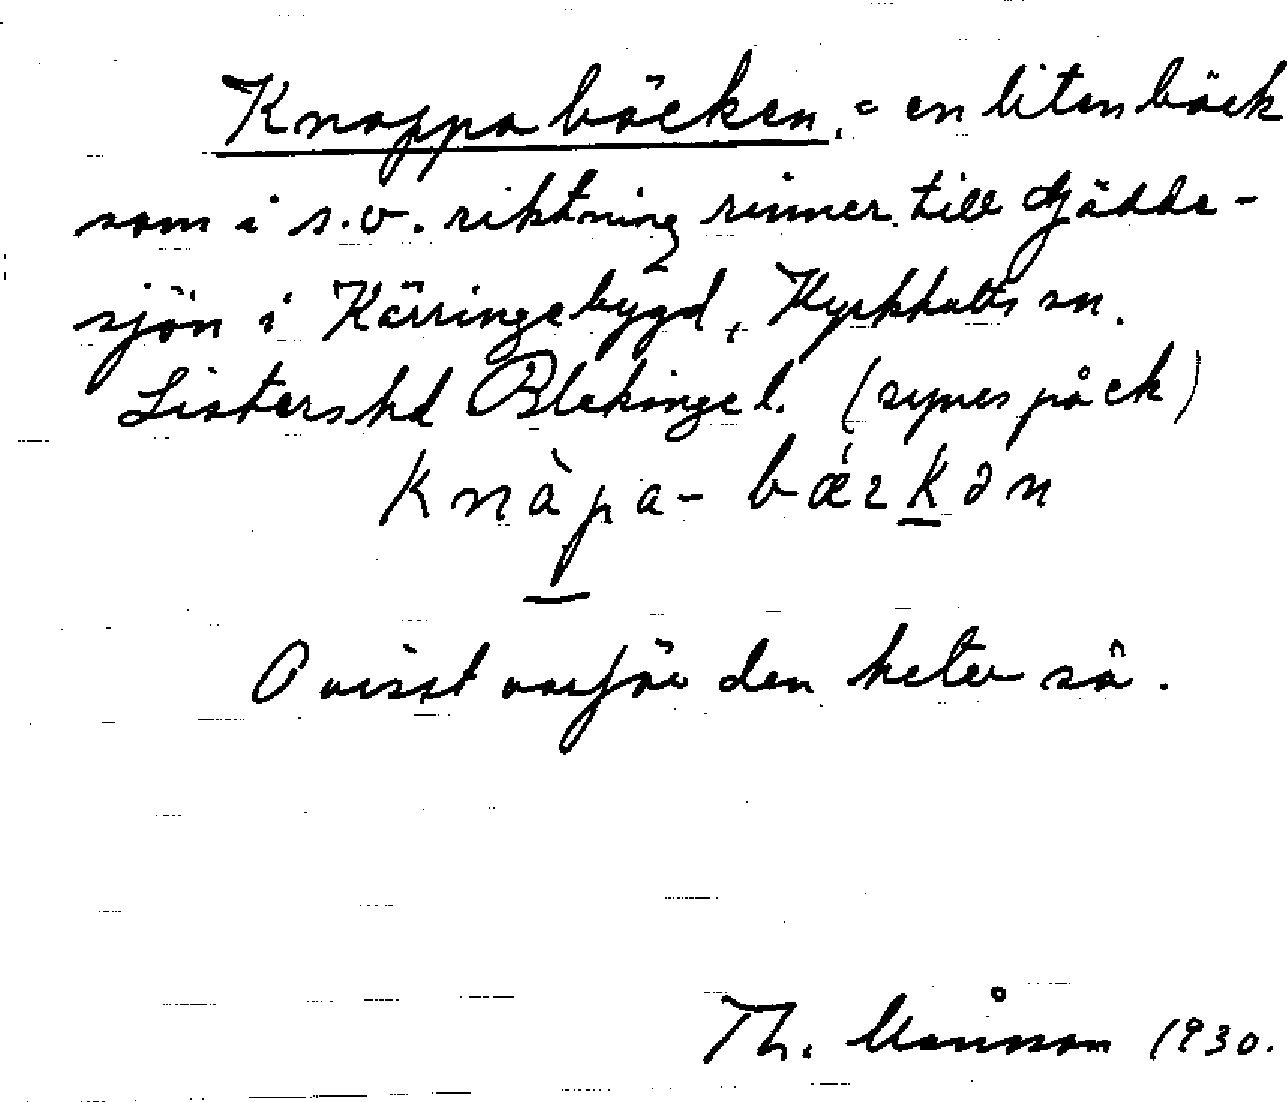 Knappabäcken. = en liten bäck
som i s.v. riktning rinner till Gjädde-
sjön i Kärringebygd, Kyrkhults sn.
Listers hd Blekinge l. (synes på ek)
Knàpa- bǽrkən
Ovisst varför den heter så.
Th. Månsson 1930.